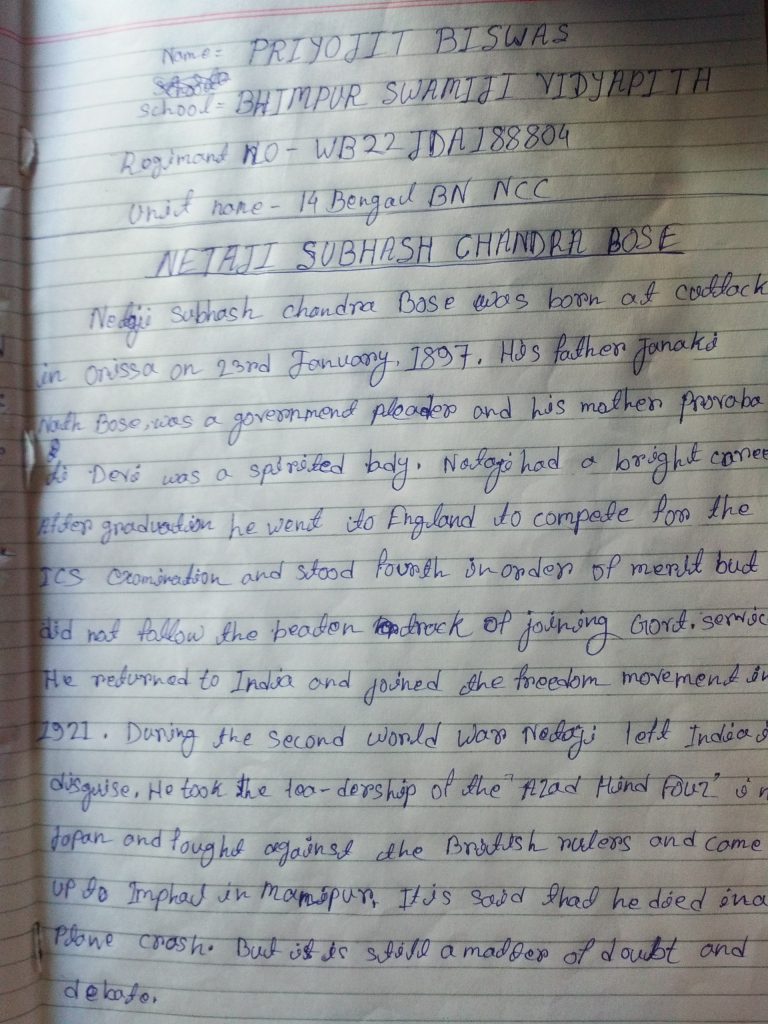 Name = PRIYOJIT BISWAS
School = BHIMPUR SWAMIJI VIDYAPITH
Rogimand NO - WB22JDA188804
Unit name - 14 Bengal BN NCC
NETAJI SUBHASH CHANDRA BOSE
Netaji Subhash chandra Bose was born at cuttack
in Orissa on 23rd January, 1897. His father Janaki
Nath Bose, was a government pleader and his mother Provaba
ti Devi was a spirited lady. Netaji had a bright caree
After graduation he went to England to compete for the
ICS examination and stood fourth in order of merit but
did not follow the beaten track of joining Govt. servic
He returned to India and joined the freedom movement in
1921. During the second world war Netaji left India i
disguise. He took the lea-dership of the "Azad Hind Fouz" in
Japan and fought against the British rulers and came
up to Imphal in Manipur. It is said that he died in a
Plane crash. But it is still a matter of doubt and
debate.